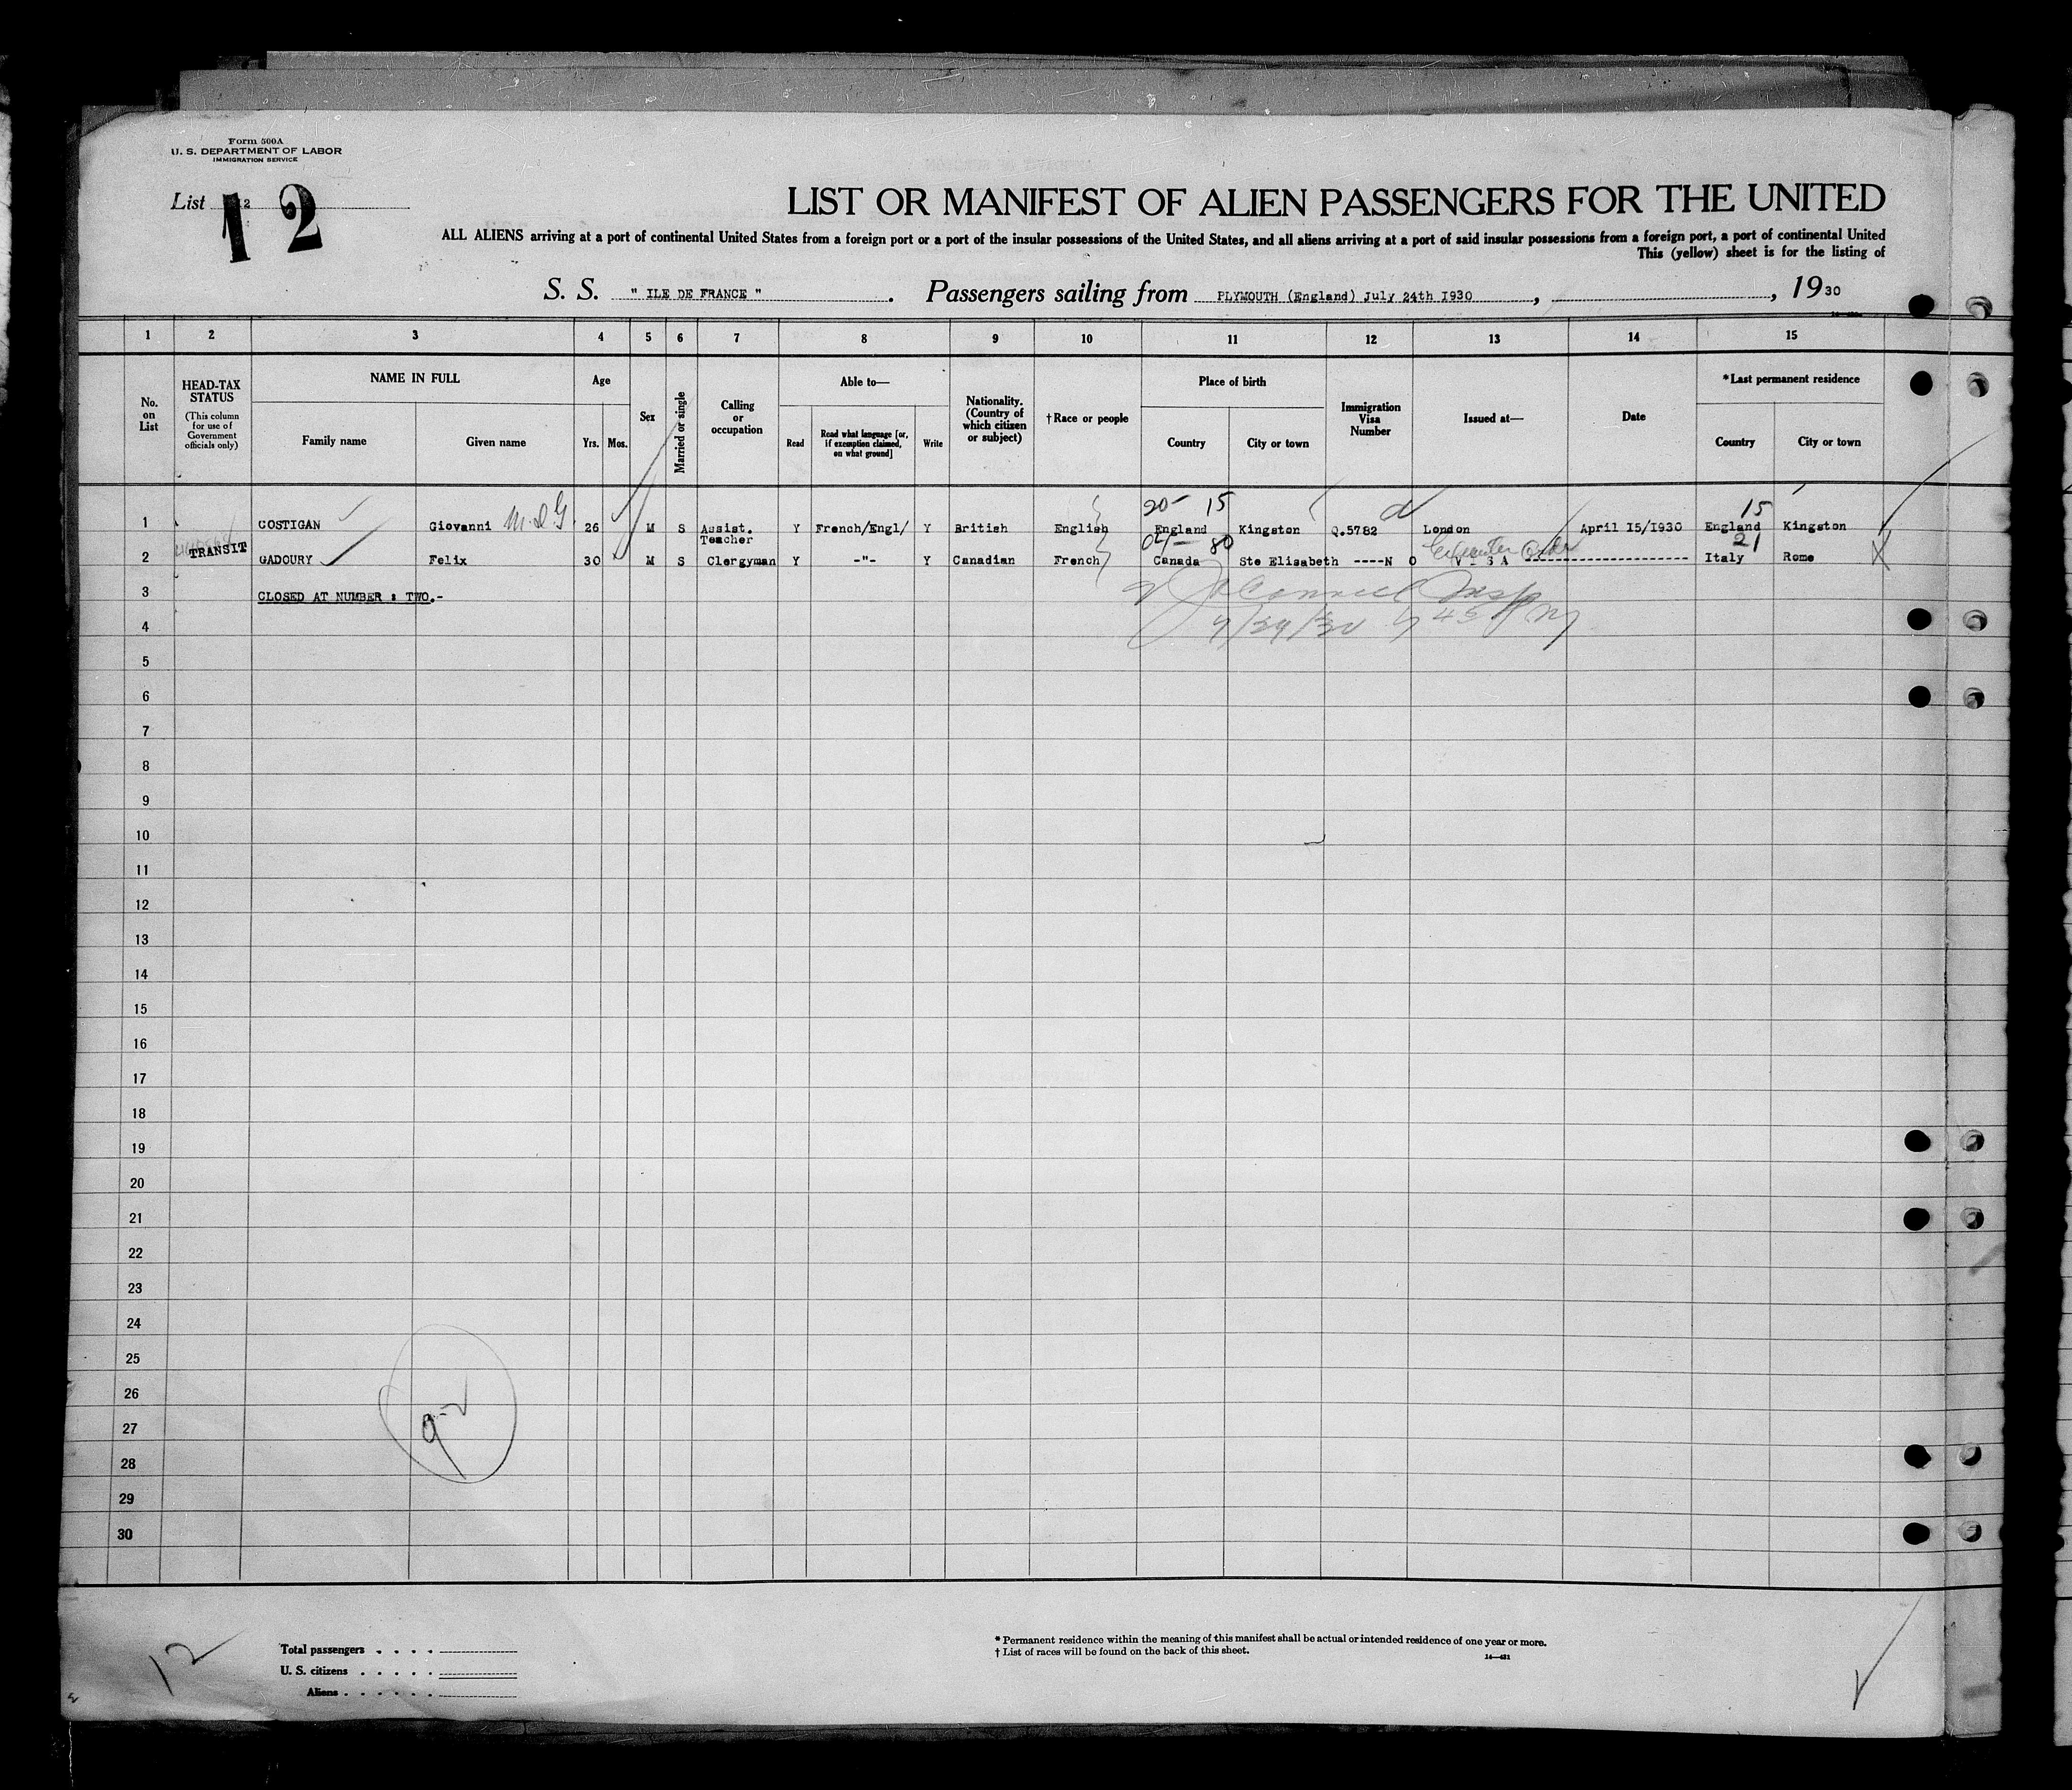 Form 500A
U. S. DEPARTMENT OF LABOR
IMMIGRATION SERVICE
List 12
12
LIST OR MANIFEST OF ALIEN PASSENGERS FOR THE UNITED
ALL ALIENS arriving at a port of continental United States from a foreign port or a port of the insular possessions of the United States, and all aliens arriving at a port of said insular possessions from a foreign port, a port of continental United
This (yellow) sheet is for the listing of
S. S. " ILE DE FRANCE " . Passengers sailing from PLYMOUTH (England) July 24th 1930 , , 1930
1 2 3 4 5 6 7 8 9 10 11 12 13 14 15
No. on List
HEAD-TAX STATUS
(This column for use of Government officials only)
NAME IN FULL
Family name Given name
Age
Yrs. Mos.
Sex
Married or single
Calling or occupation
Able to—
Read
Read what language [or, if exemption claimed, on what ground]
Write
Nationality. (Country of which citizen or subject)
†Race or people
Place of birth
Country City or town
Immigration Visa Number
Issued at—
Date
*Last permanent residence
Country City or town
20- 15 15
1 COSTIGAN Giovanni 26 M S Assist. Teacher Y French/Engl/ Y British English England Kingston Q.5782 London April 15/1930 England Kingston
80 21
2 TRANSIT GADOURY Felix 30 M S Clergyman Y -"- Y Canadian French Canada Ste Elisabeth ----N O V I S A ------------------ Italy Rome
3 CLOSED AT NUMBER : TWO.-
4
5
6
7
8
9
10
11
12
13
14
15
16
17
18
19
20
21
22
23
24
25
26
27
28
29
30
12
Total passengers . . . .
U. S. citizens . . . . .
Aliens . . . . . .
* Permanent residence within the meaning of this manifest shall be actual or intended residence of one year or more.
† List of races will be found on the back of this sheet.